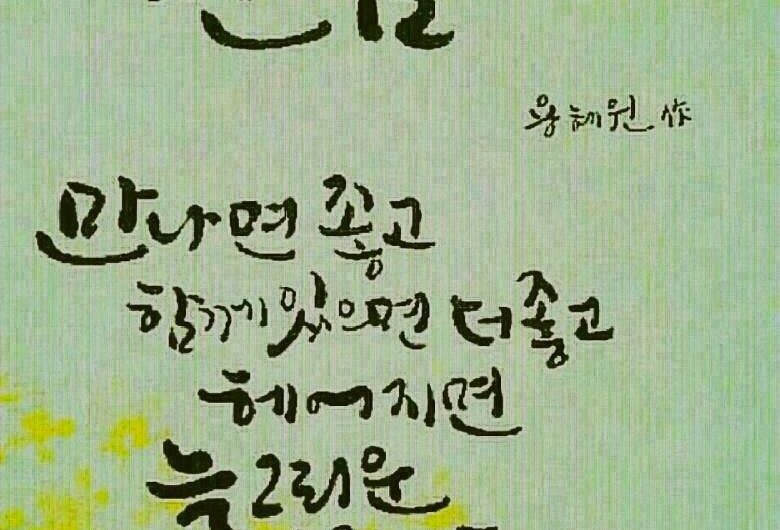 용혜원 作
만나면 좋고
함께 있으면 더 좋고
헤어지면
늘 그리운